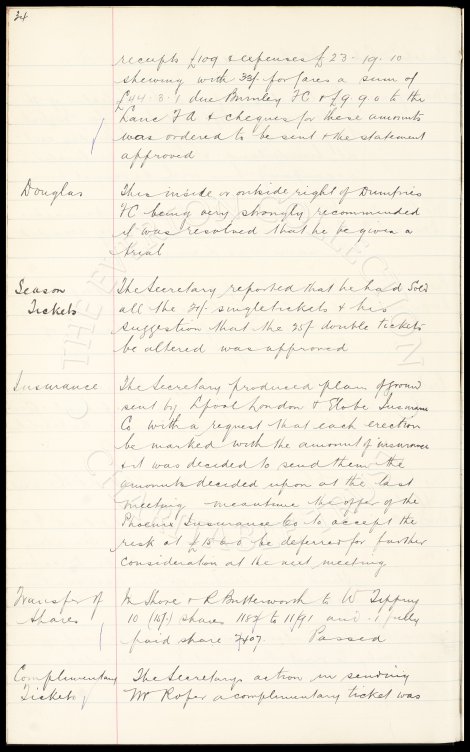 34
receipts £109 & expenses £23-19-10
shewing with 33/- for fares a sum of
£44-3-1 due Burnley FC & £9-9-0 to the
Lanc FA & cheques for these amounts
was ordered to be sent & the statement
approved
Douglas This inside or outside right of Dumfries
FC being very strongly recommended
it was resolved that he be given a
trial
Season The Secretary reported that he had sold
Tickets all the 21/- single tickets & his
suggestion that the 25/- double tickets
be altered was approved
Insurance The Secretary produced plan of ground
sent by Lpool London & Globe Insurance
Co with a request that each erection
be marked with the amount of insurance
& it was decided to send them the
amounts decided upon at the last
meeting meantime the offer of the
Phoenix Insurance Co to accept the
risk at £15-0-0 be deferred for further
consideration at the next meeting
Transfer of M Shore & R Butterworth to W Tipping
Shares 10 (10/-) shares 1182 to 1191 and 1 fully
paid share Passed
Complimentary The Secretarys action in sending
Tickets Mr Roper a complimentary ticket was